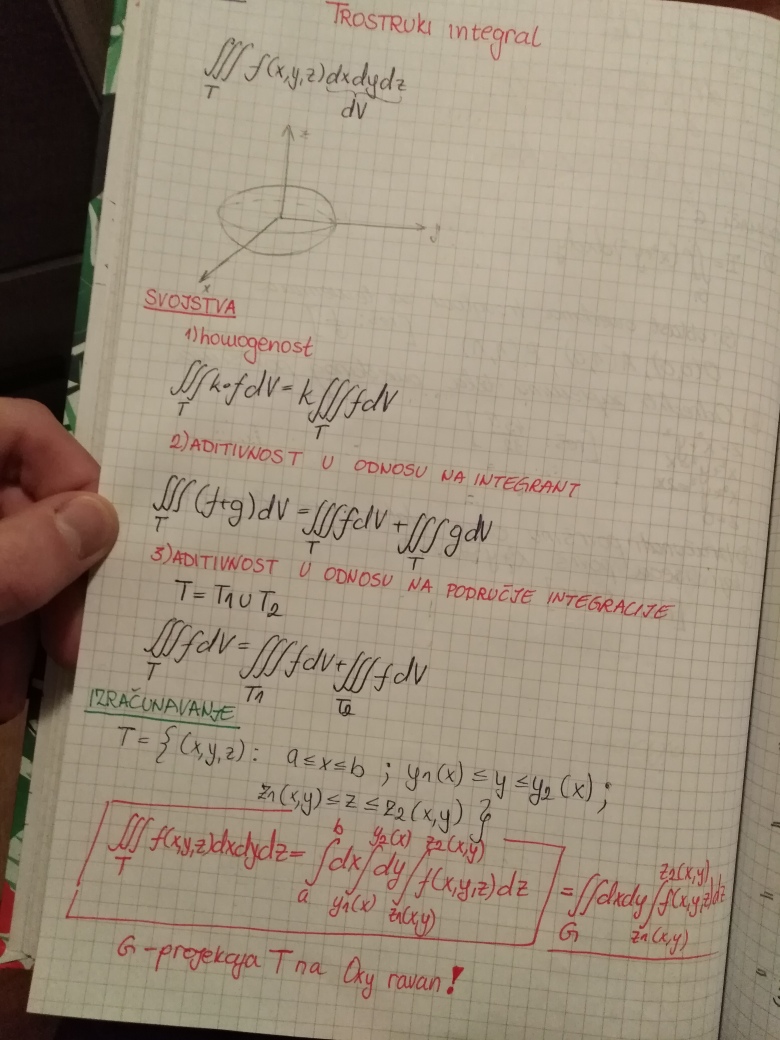 TROSTRUKI integral
∭ f(x,y,z) dxdydz
T
dV
z
y
x
SVOJSTVA
1) homogenost
∭ k·f dV = k ∭ f dV
T T
2) ADITIVNOST U ODNOSU NA INTEGRANT
∭ (f+g) dV = ∭ f dV + ∭ g dV
T T T
3) ADITIVNOST U ODNOSU NA PODRUČJE INTEGRACIJE
T = T1 ∪ T2
∭ f dV = ∭ f dV + ∭ f dV
T T1 T2
IZRAČUNAVANJE
T = { (x,y,z) : a ≤ x ≤ b ; y1(x) ≤ y ≤ y2(x) ;
z1(x,y) ≤ z ≤ z2(x,y) }
b y2(x) z2(x,y) z2(x,y)
∭ f(x,y,z) dxdydz = ∫ dx ∫ dy ∫ f(x,y,z) dz = ∬ dxdy ∫ f(x,y,z) dz
T a y1(x) z1(x,y) G z1(x,y)
G - projekcija T na Oxy ravan!